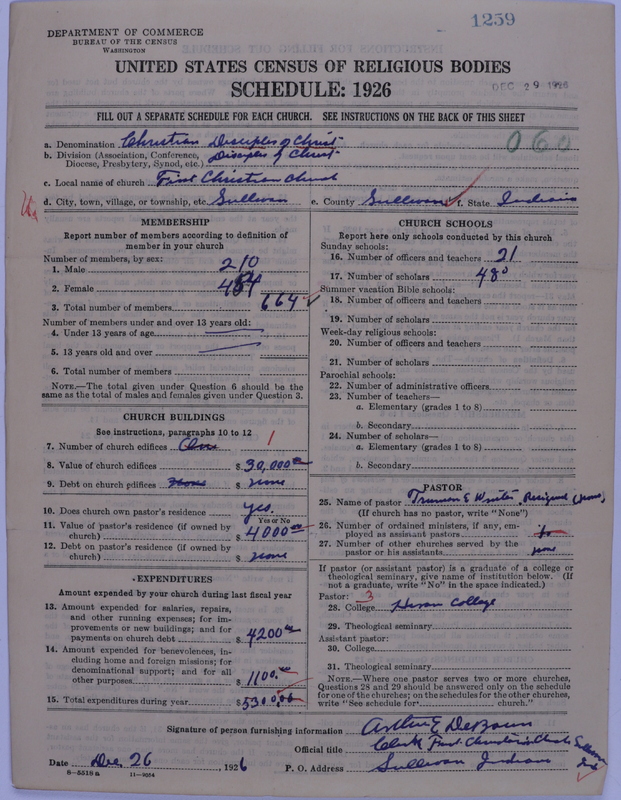 1259
DEPARTMENT OF COMMERCE
BUREAU OF THE CENSUS
WASHINGTON
UNITED STATES CENSUS OF RELIGIOUS BODIES
SCHEDULE: 1926
DEC 29 1926
FILL OUT A SEPARATE SCHEDULE FOR EACH CHURCH. SEE INSTRUCTIONS ON THE BACK OF THIS SHEET
060
a. Denomination Christian Disciples of Christ
b. Division (Association, Conference, Diocese, Presbytery, Synod, etc.) Disciples of Christ
c. Local name of church First Christian Church
d. City, town, village, or township, etc. Sullivan e. County Sullivan f. State Indiana
MEMBERSHIP
Report number of members according to definition of
member in your church
Number of members, by sex:
1. Male 210
2. Female 454
3. Total number of members 664
Number of members under and over 13 years old:
4. Under 13 years of age
5. 13 years old and over
6. Total number of members
NOTE.—The total given under Question 6 should be
same as the total of males and females given under Question 3.
CHURCH BUILDINGS
See instructions, paragraphs 10 to 12
7. Number of church edifices One 1
8. Value of church edifices $ 30,000
9. Debt on church edifices None $ none
10. Does church own pastor's residence yes.
Yes or No
11. Value of pastor's residence (if owned by
church) $ 4000
12. Debt on pastor's residence (if owned by
church) $ none
EXPENDITURES
Amount expended by your church during last fiscal year
13. Amount expended for salaries, repairs,
and other running expenses; for im-
provements or new buildings; and for
payments on church debt $ 4200
14. Amount expended for benevolences, in-
cluding home and foreign missions; for
denominational support; and for all
other purposes $ 1100.
15. Total expenditures during year $ 5300.00
CHURCH SCHOOLS
Report here only schools conducted by this church
Sunday schools:
16. Number of officers and teachers 21
17. Number of scholars 480
Summer vacation Bible schools:
18. Number of officers and teachers
19. Number of scholars
Week-day religious schools:
20. Number of officers and teachers
21. Number of scholars
Parochial schools:
22. Number of administrative officers
23. Number of teachers—
a. Elementary (grades 1 to 8)
b. Secondary
24. Number of scholars—
a. Elementary (grades 1 to 8)
b. Secondary
PASTOR
25. Name of pastor Truman E Resigned (none)
(If church has no pastor, write "None")
26. Number of ordained ministers, if any, em-
ployed as assistant pastors
27. Number of other churches served by the
pastor or his assistants none
If pastor (or assistant pastor) is a graduate of a college or
theological seminary, give name of institution below. (If
not a graduate, write "No" in the space indicated.)
Pastor: 3
28. College Hiram College
29. Theological seminary
Assistant pastor:
30. College
31. Theological seminary
NOTE.—Where one pastor serves two or more churches,
Questions 28 and 29 should be answered only on the schedule
for one of the churches; on the schedules for the other churches,
write "See schedule for church."
Signature of person furnishing information Arthur E DeBaun
Official title Clerk First Christian Church Sullivan Ind
Date Dec. 26, 1926 P. O. Address Sullivan Indiana
8-5518 a 11-9054